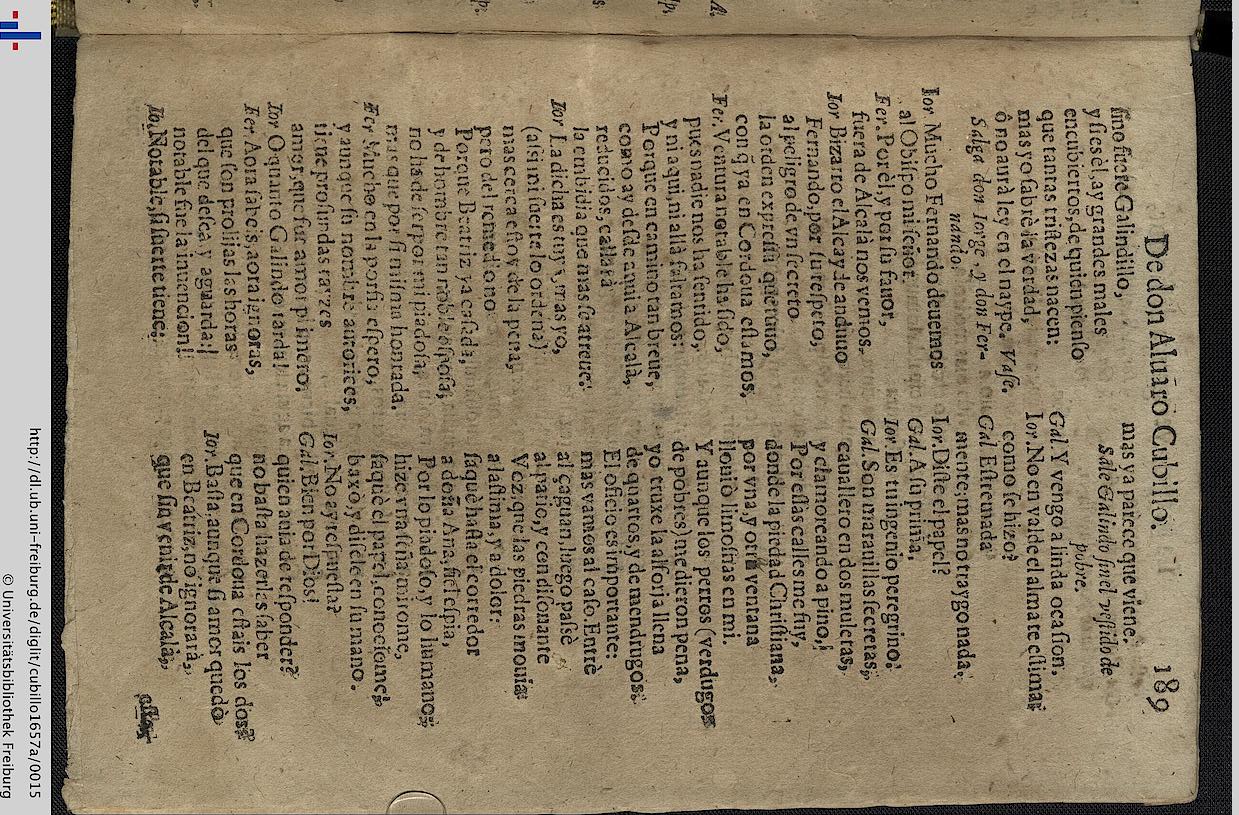 De don Aluaro Cubillo. 189
sino fuere Galindillo,
y si es èl, ay grandes males
encubiertos, de quien pienso
que tantas tristezas nacen:
mas yo sabrè la verdad,
ò no aurà ley en el naype. Vase.
Salga don Iorge, y don Fer-
nando.
Ior Mucho Fernando deuemos
al Obispo mi señor.
Fer. Por èl, y por su fauor,
fuera de Alcalà nos vemos.
Ior Bizarro el Alcayde anduuo
Fernando, por su respeto,
al peligro de vn secreto
la orden expressa que tuuo,
con q̃ ya en Cordoua estamos,
Fer. Ventura notable ha sido,
pues nadie nos ha sentido,
y ni aqui, ni allà faltamos:
Porque en camino tan breue,
como ay desde aqui a Alcalà,
reducidos, callarà
la embidia que mas se atreue.
Ior La dicha es tuya, mas yo,
(assi mi suerte lo ordena)
mas cerca estoy de la pena,
pero del remedio no
Porque Beatriz ya casada,
y de hombre tan noble esposa,
no ha de ser por mi piadosa,
mas que por si misma honrada.
Fer Mucho en la porfia espero,
y aunque su nombre autorices,
tiene profundas raízes
amor, que fue amor primero.
Ior O quanto Galindo tarda!
Fer. Aora sabeis, aora ignoras,
que son prolijas las horas
del que dessea, y aguarda:
notable fue la inuencion!
Io. Notable, si suerte tiene;
mas ya parece que viene.
Sale Galindo sin el vestido de
pobre.
Gal Y vengo a linda ocasion,
Ior. No en valde el alma te estima;
como se hizo?
Gal Estremada
mente; mas no traygo nada.
Ior. Diste el papel?
Gal. A su prima.
Ior. Es tu ingenio peregrino!
Gal. Son marauillas secretas;
cauallero en dos muletas,
y clamoreando a pino,
Por essas calles me fuy,
donde la piedad Christiana,
por vna, y otra ventana
llouiò limosnas en mi.
Y aunque los perros (verdugos
de pobres) me dieron pena,
yo truxe la alforja llena
de quartos, y de mendrugos.
El oficio es importante:
mas vamos al caso. Entrè
al çaguan, luego passè
al patio, y con disonante
Voz, que las piedras mouia
a lastima, y a dolor:
saquè hasta el corredor
a doña Ana, fiel espia,
Por lo piadoso, y lo humano,
hize vna seña, miròme,
saquè el papel, conociòme,
baxò, y dísele en su mano.
Ior. No ay respuesta?
Gal. Bien por Dios!
quien auia de responder?
no basta hazerles saber
que en Cordoua estais los dos?
Ior. Basta, aunque si amor quedò
en Beatriz, no ignorarà,
que sin venir de Alcalà,
esto,
http://dl.ub.uni-freiburg.de/diglit/cubillo1657a/0015
© Universitätsbibliothek Freiburg